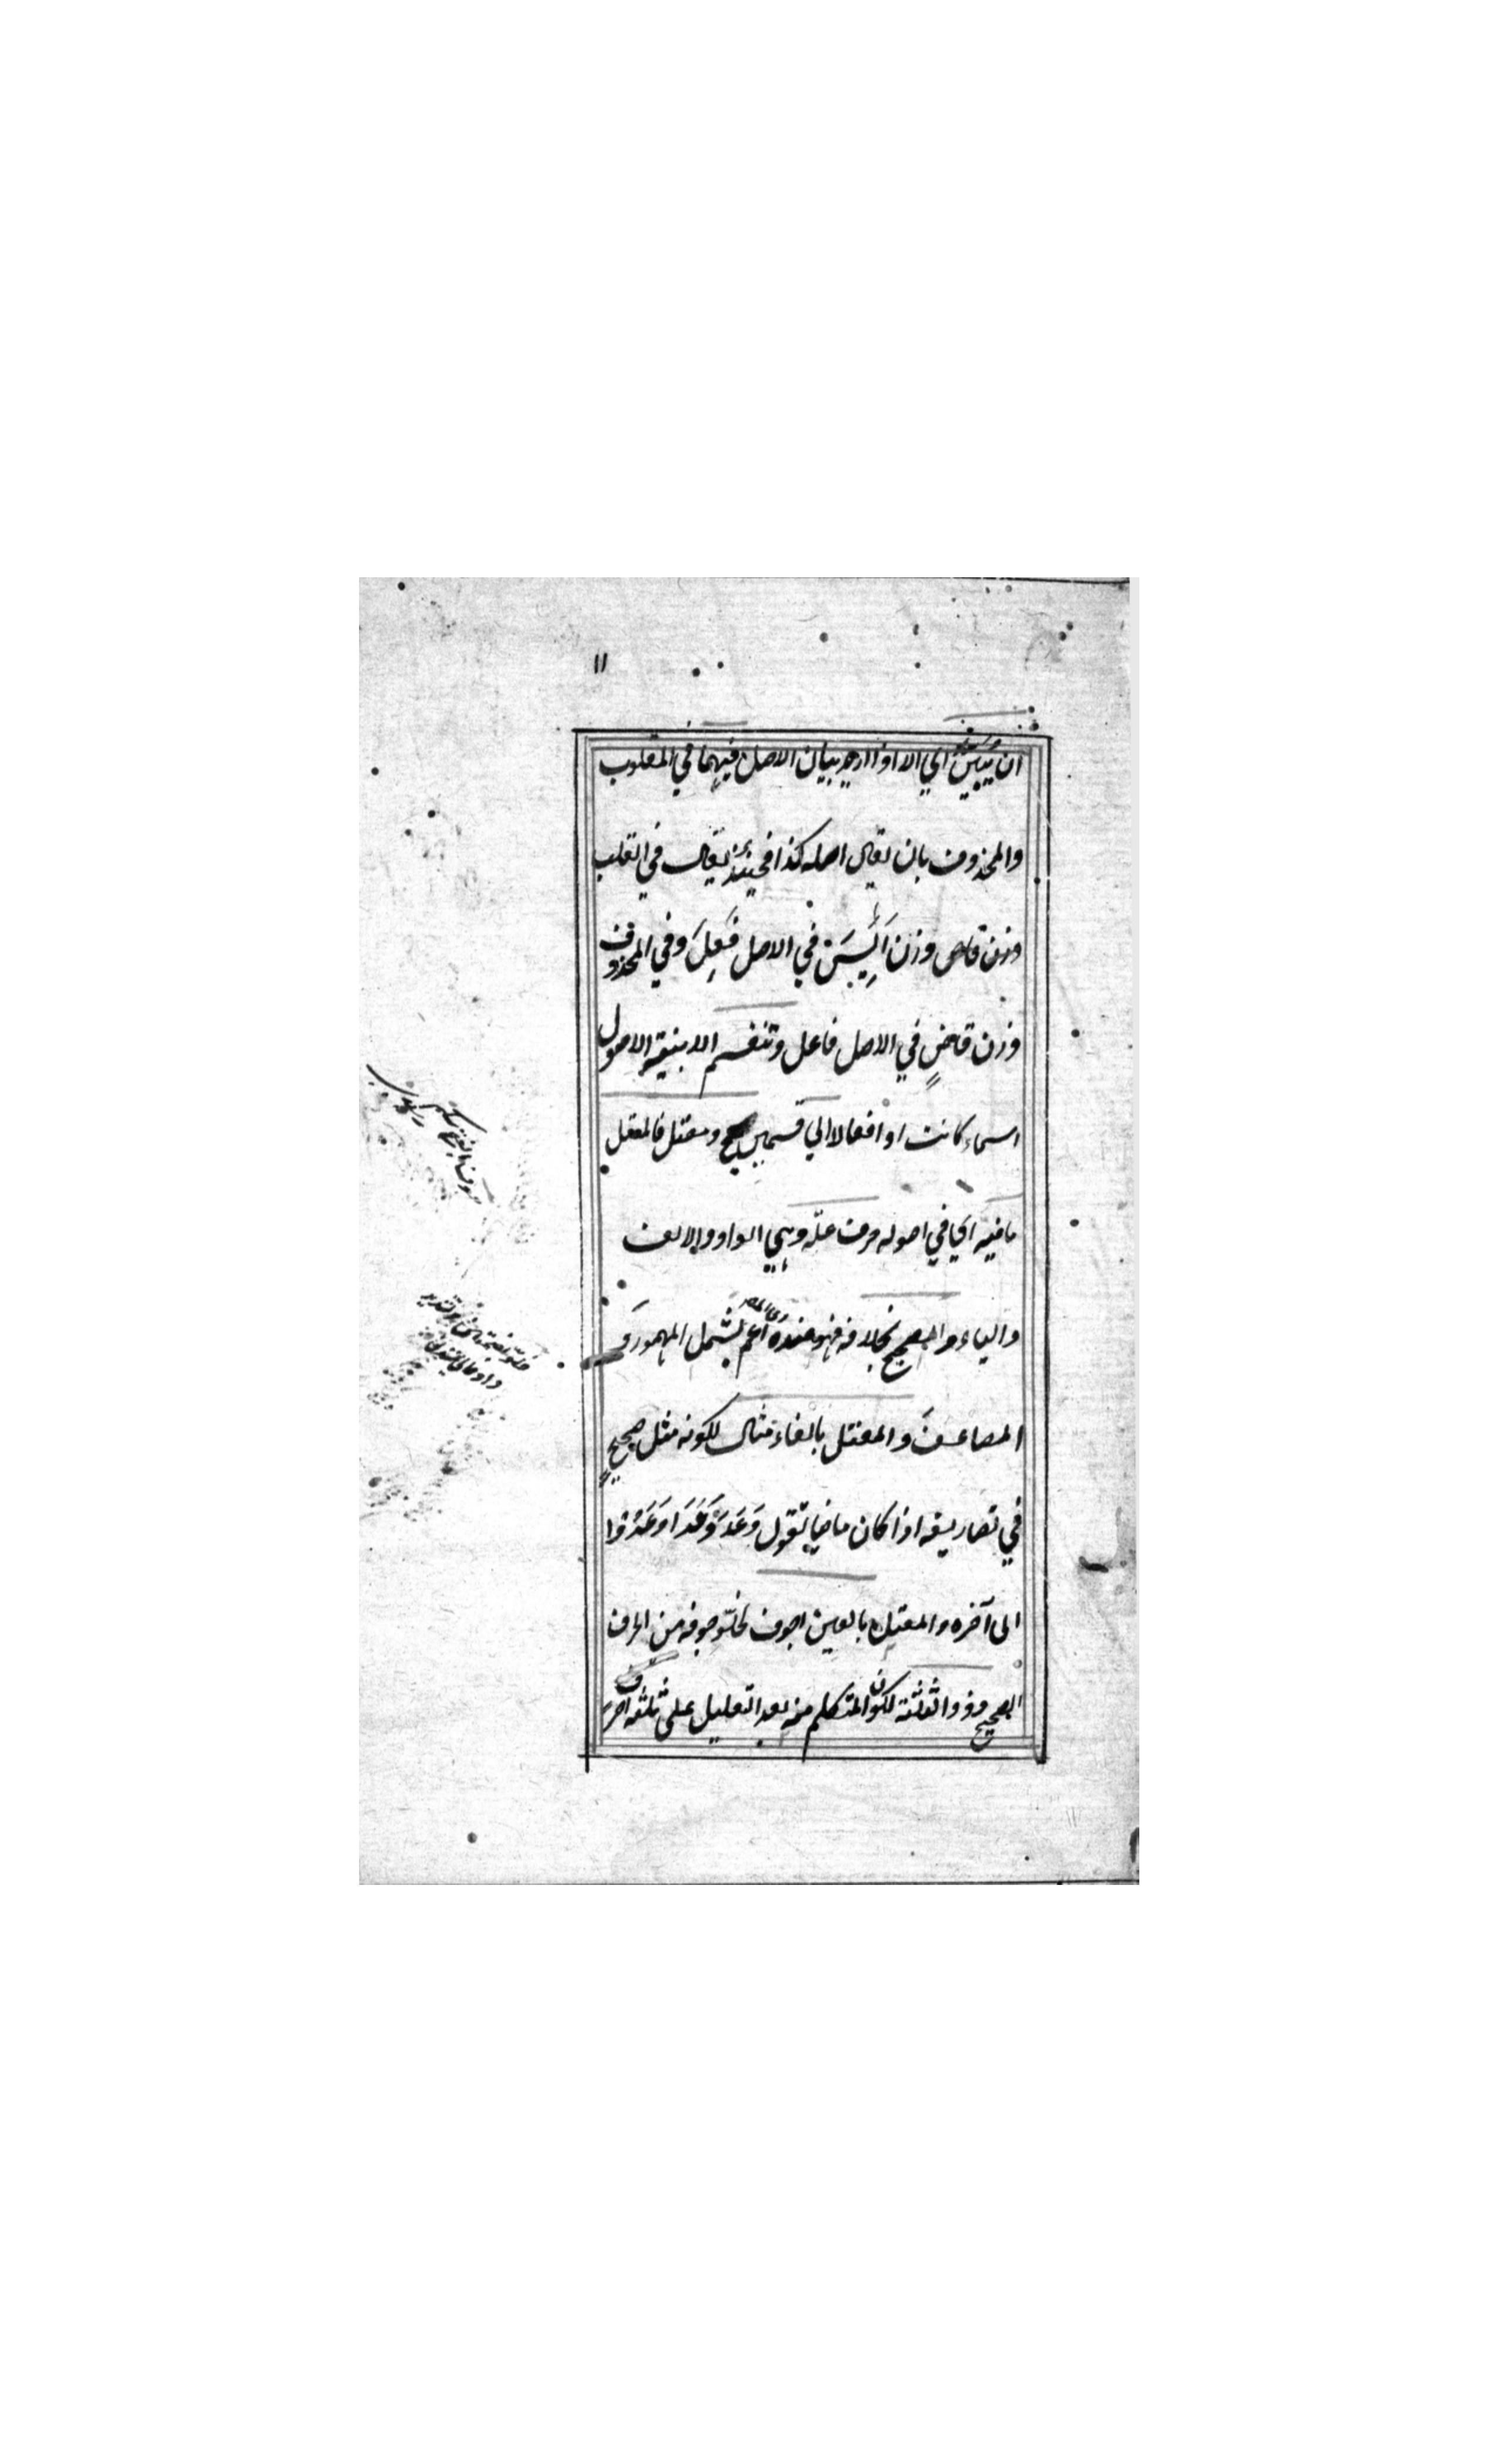 ١١
ان يُبَيَّنَ اي الا اذا اريد بيان الاصل فيهما في المقلوب
والمحذوف بان يقال اصله كذا فحينئذ يقال في القلب
وزن قاض وزن اَيِسَ في الاصل فَعِلَ وفي المحذوف
وزن قاضٍ في الاصل فاعل وتنقسم الابنية الاصول
اسماء كانت او افعالا الي قسمين صحيح ومعتل فالمعتل
ما فيه اي في اصوله حرف علّه وهي الواو والالف
والياء والصحيح بخلافه فهو عنده اعم لشمل المهموز وَ
المضاعف وَالمعتل بالفاء مثال لكونه مثل صحيحٍ
في تصاريفه اذا كان ماضيا تقول وَعَدَ وَعَدَا وَعَدُوا
الى آخره والمعتل بالعين اجوف لخلوّ جوفه من الحرف
الصحيح وذو الثلثة لكون المتكلم منه بعد التعليل على ثلثه احرف